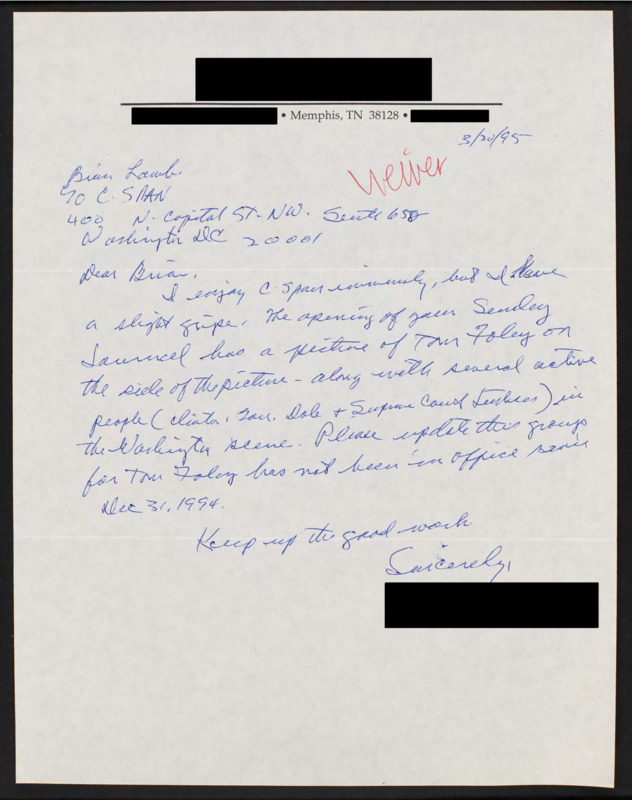 • Memphis, TN 38128 •
3/20/95
Viewer
Brian Lamb
% C. SPAN
400 N. Capital ST. NW. Suite 650
Washington DC 20001
Dear Brian,
I enjoy C. Span immensely, but I have
a slight gripe. The opening of your Sunday
Journal has a picture of Tom Foley on
the side of the picture - along with several active
people (Clinton, Gov. Dole + Supreme Court Justices) in
the Washington scene. Please update this group
for Tom Foley has not been in office since
Dec 31, 1994.
Keep up the good work
Sincerely,